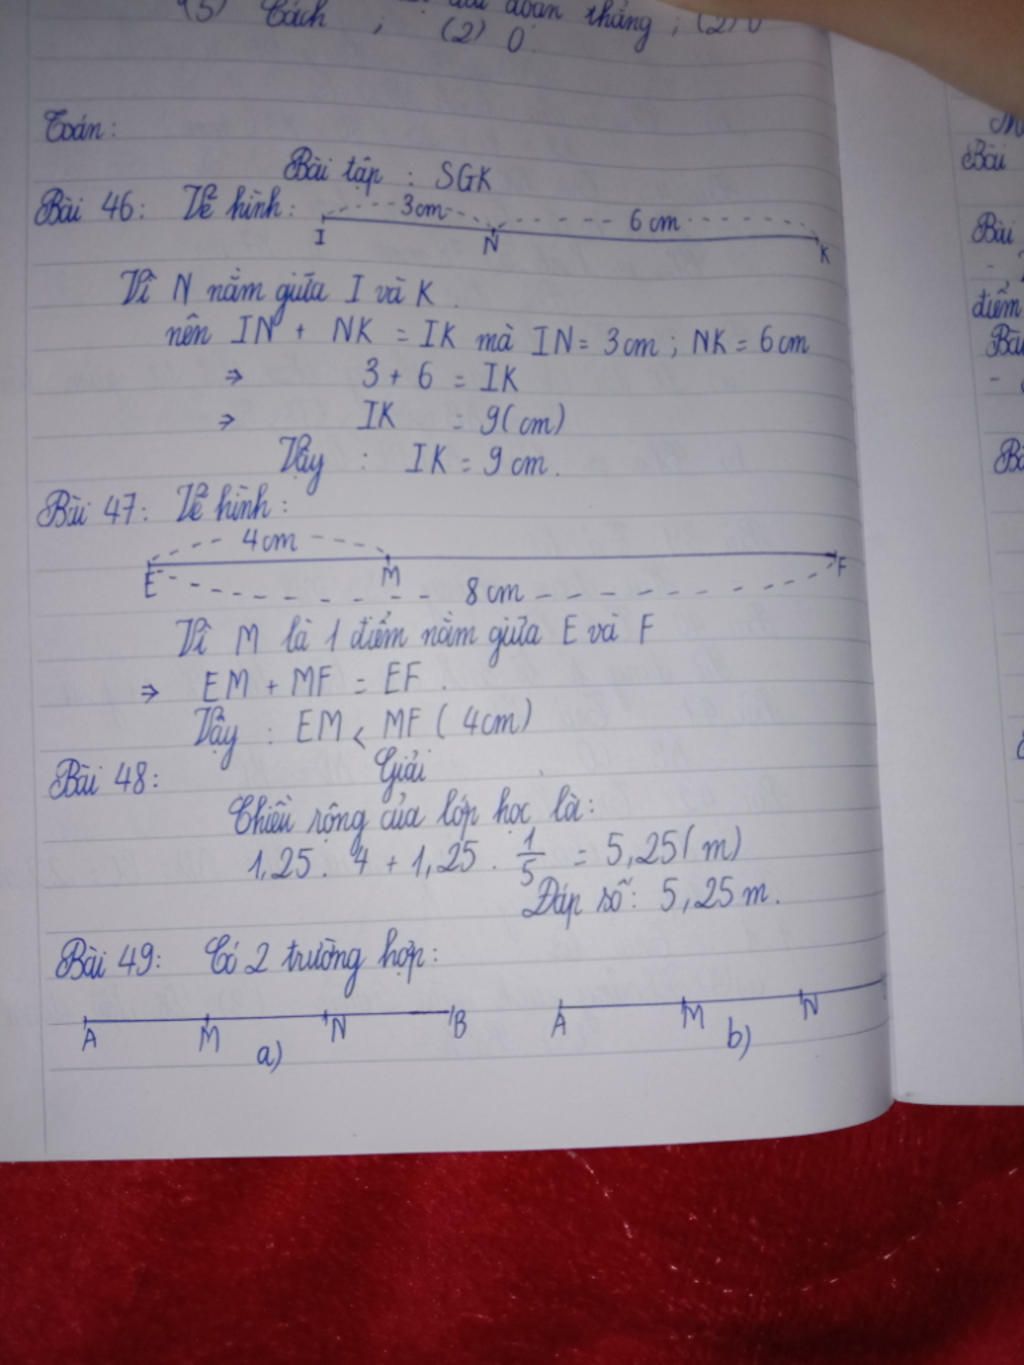 (5) Cách ; (2) 0 đoạn thẳng ; (2) 0
Toán:
Bài tập : SGK
Bài 46: Vẽ hình: 3cm 6cm
I N K
Vì N nằm giữa I và K.
nên IN + NK = IK mà IN = 3cm ; NK = 6cm
⇒ 3 + 6 = IK
⇒ IK = 9(cm)
Vậy : IK = 9 cm.
Bài 47: Vẽ hình:
4cm
E M F
8cm
Vì M là 1 điểm nằm giữa E và F
⇒ EM + MF = EF.
Vậy : EM < MF ( 4cm)
Bài 48: Giải
Chiều rộng của lớp học là:
1,25 . 4 + 1,25 . 1/5 = 5,25( m)
Đáp số: 5,25 m.
Bài 49: Có 2 trường hợp:
A M N B A M N
a) b)
Bài
Bài
điểm